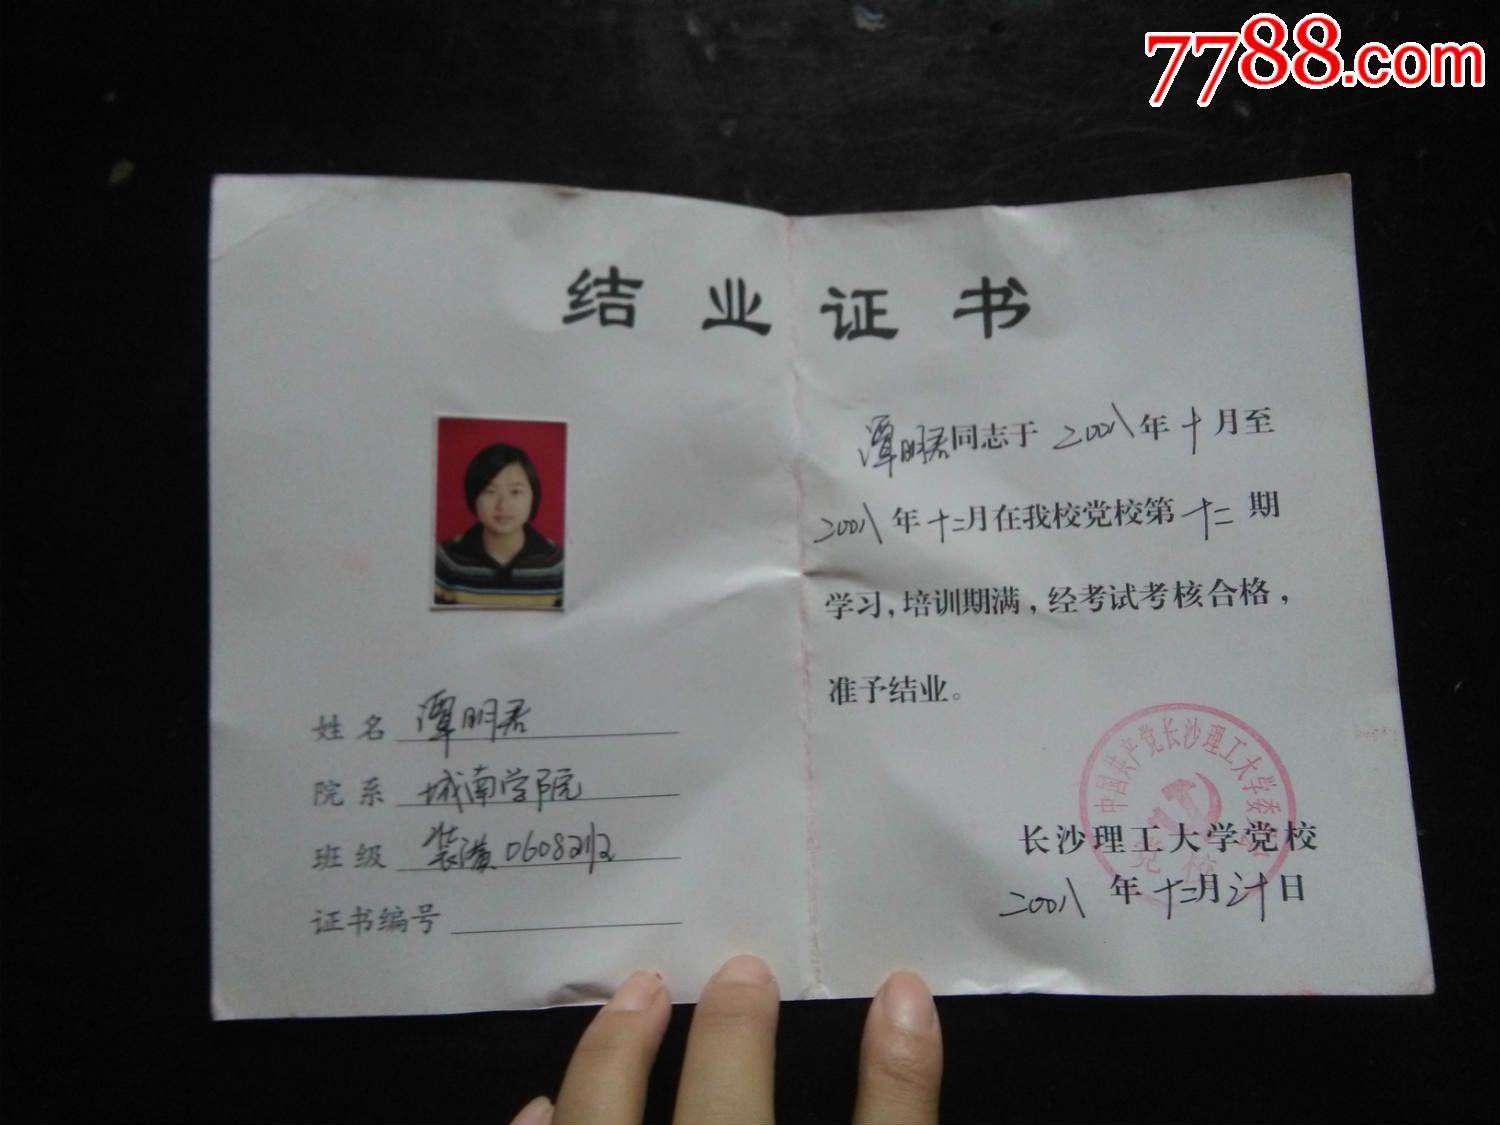 7788.com
结业证书
谭明君同志于 二00八年十月至
二00八年十二月在我校党校第十二期
学习，培训期满，经考试考核合格，
准予结业。
姓名 谭明君
院系 城南学院
班级 装潢0608212
证书编号
中国共产党长沙理工大学委
党校
长沙理工大学党校
二00八年十二月二十日